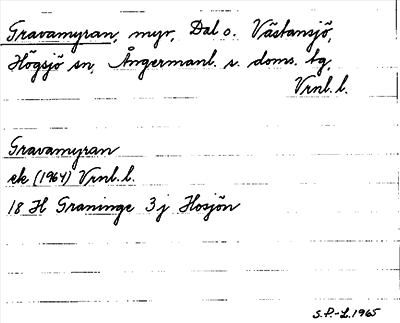 Gravamyran, myr, Dal o. Västansjö,
Högsjö sn, Ångermanl. s. doms. tg,
Vrnl. l.
Gravamyran
ek (1964) Vrnl. l.
18 H Graninge 3 j Hosjön
S.P.-L. 1965